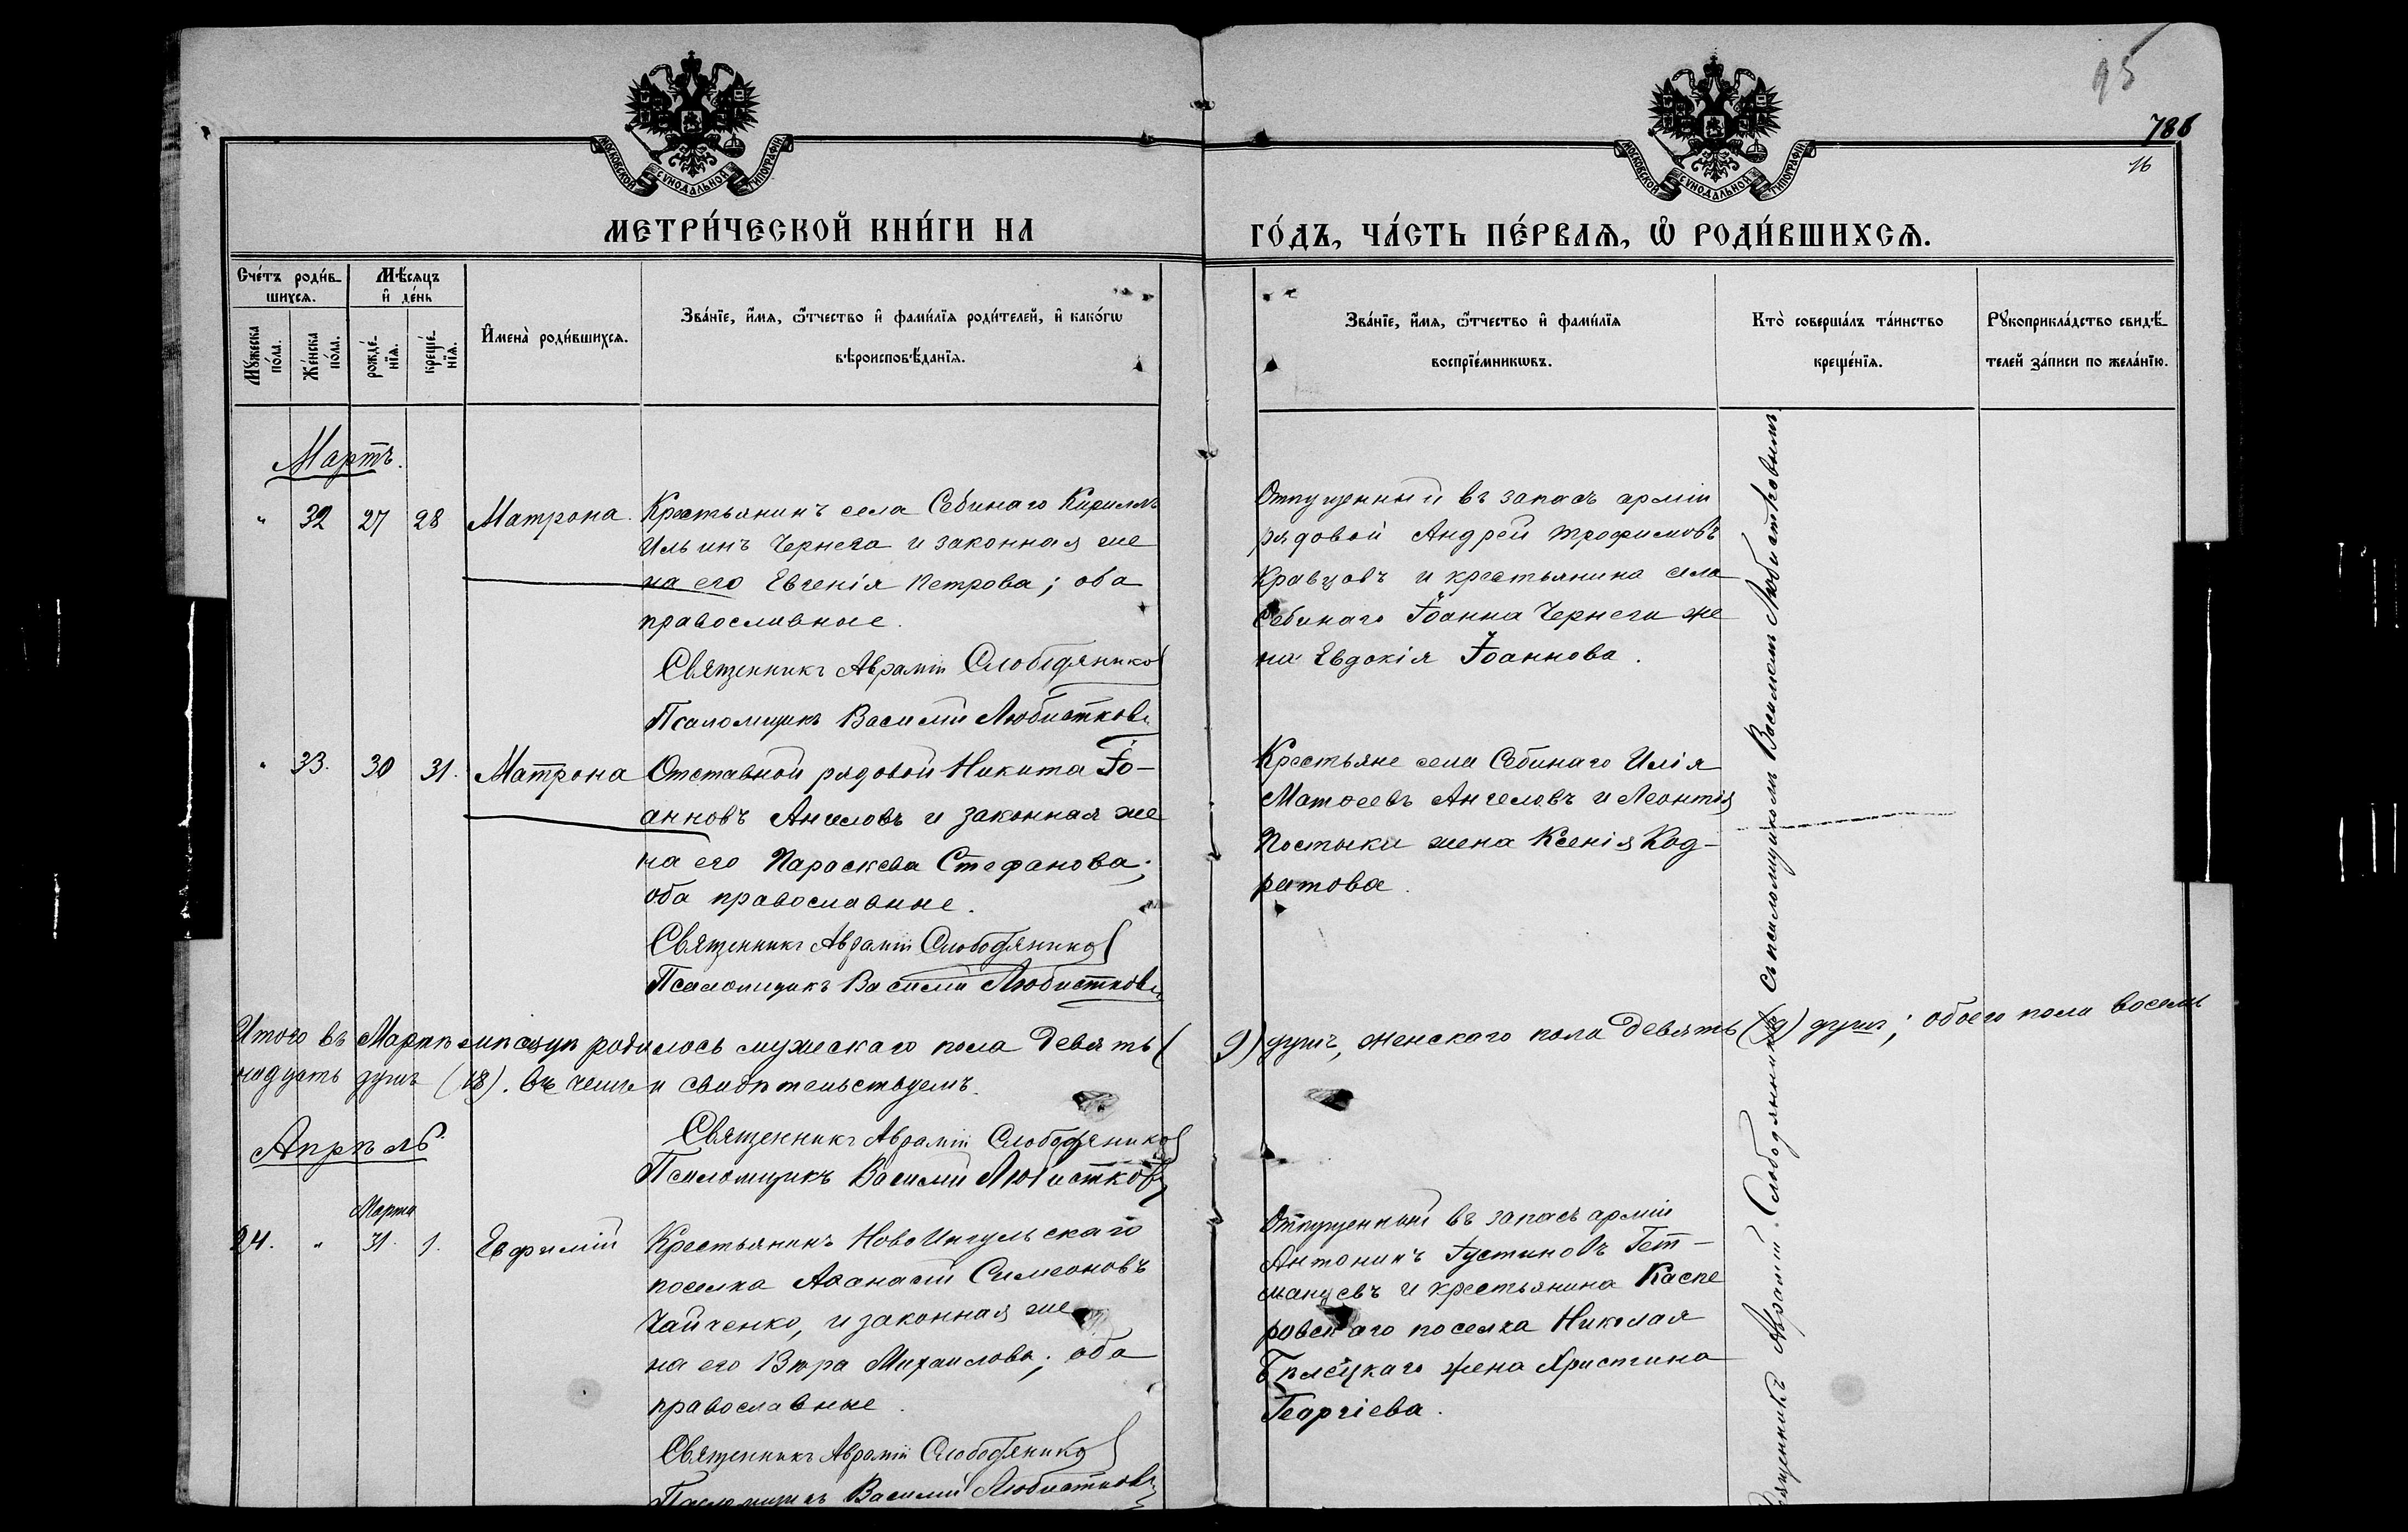 95
788
16
МОСКОВСКОЙ СУНОДАЛЬНОЙ ТИПОГРАФІИ
МОСКОВСКОЙ СУНОДАЛЬНОЙ ТИПОГРАФІИ
МЕТРИ́ЧЕСКОЙ КНИ́ГИ НА
ГО́ДЪ, ЧА́СТЬ ПЕ́РВАѦ, Ѡ҆ РОДИ́ВШИХСѦ.
Сче́тъ роди́в-
шихсѧ.
Мѣ́сяцъ
и҆ де́нь
Мꙋ́жеска
по́ла.
Же́нска
по́ла.
рожде́-
нїѧ.
креще́-
нїѧ.
И҆мена̀ роди́вшихсѧ.
Зва́нїе, и҆́мѧ, ѻ҆́тчество и҆ фами́лїѧ роди́телей, и҆ како́гѡ
вѣроисповѣ́данїѧ.
Зва́нїе, и҆́мѧ, ѻ҆́тчество и҆ фами́лїѧ
воспрїе́мникѡвъ.
Кто̀ соверша́лъ та́инство
креще́нїѧ.
Рꙋкоприкла́дство свидѣ́-
телей за́писи по жела́нїю.
Мартъ.
" 32 27 28 Матрона. Крестьянинъ села Себинаго Кириллъ
Ильинъ Чернега и законная же
на его Евгенія Петрова; оба
православные.
Священникъ Аврамій Слободяниковъ
Псаломщикъ Василій Любистковъ
Отпущенный въ запасъ арміи
рядовой Андрей Трофимовъ
Кравцовъ и крестьянина села
Себинаго Іоанна Чернеги же
на Евдокія Іоаннова.
" 33. 30 31. Матрона Отставной рядовой Никита Іо-
анновъ Ангеловъ и законная же
на его Параскева Стефанова;
оба православные.
Священникъ Аврамій Слободяниковъ
Псаломщикъ Василій Любистковъ
Крестьяне села Себинаго Илія
Матѳеевъ Ангеловъ и Леонтія
Постыки жена Ксенія Код-
ратова.
Итого въ Мартѣ мѣсяцѣ родилось мужескаго пола девять (9) душъ, женскаго пола девять (9) душъ; обоего пола восем
надцать душъ (18). Въ чемъ и свидѣтельствуемъ.
Священникъ Аврамій Слободяниковъ
Псаломщикъ Василій Любистковъ
Апрѣль.
Марта
24. " 31. 1. Евфимій Крестьянинъ НовоИнгульскаго
поселка Аѳанасій Симеоновъ
Чайченко, и законная же
на его Вѣра Михаилова; оба
православные.
Священникъ Аврамій Слободяниковъ
Псаломщикъ Василій Любистковъ
Отпущенный въ запасъ арміи
Антонинъ Іустиновъ Гет-
манцевъ и крестьянина Каспе
ровскаго поселка Николая
Бѣлецкаго жена Христина
Георгіева.
Священникъ Аврамій Слободяниковъ съ псаломщикомъ Василіемъ Любистковымъ.